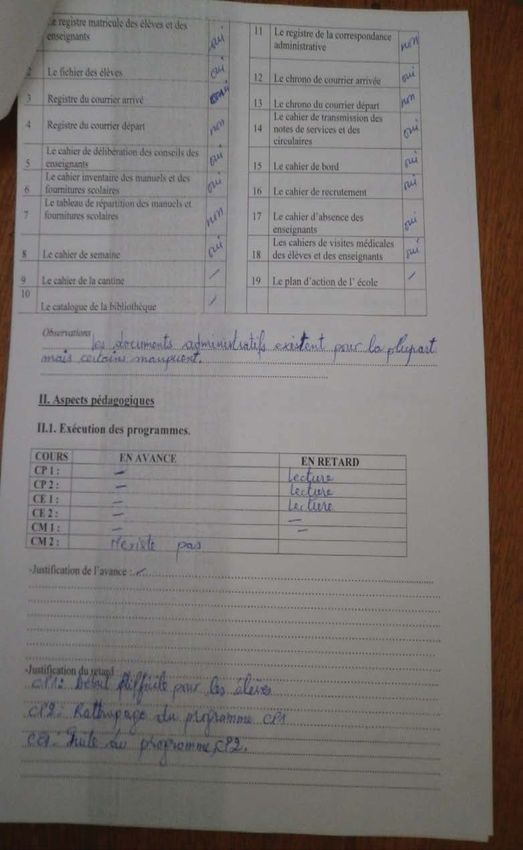 Le registre matricule des élèves et des enseignants oui
2 Le fichier des élèves oui
3 Registre du courrier arrivé oui
4 Registre du courrier départ non
5 Le cahier de délibération des conseils des enseignants oui
6 Le cahier inventaire des manuels et des fournitures scolaires oui
7 Le tableau de répartition des manuels et fournitures scolaires non
8 Le cahier de semaine oui
9 Le cahier de la cantine –
10 Le catalogue de la bibliothèque –
11 Le registre de la correspondance administrative non
12 Le chrono de courrier arrivée oui
13 Le chrono du courrier départ non
14 Le cahier de transmission des notes de services et des circulaires oui
15 Le cahier de bord oui
16 Le cahier de recrutement oui
17 Le cahier d'absence des enseignants oui
18 Les cahiers de visites médicales des élèves et des enseignants oui
19 Le plan d'action de l' école –
Observations Les documents administratifs existent pour la plupart
mais certains manquent.
II. Aspects pédagogiques
II.1. Exécution des programmes.
COURS EN AVANCE EN RETARD
CP 1 : – Lecture
CP 2 : – Lecture
CE 1 : – Lecture
CE 2 : – –
CM 1 : – –
CM 2 : N'existe pas
-Justification de l'avance : –
-Justification du retard
CP1: Début difficile pour les élèves
CP2: Rattrapage du programme CP1
CE1- Suite du programme CP2.